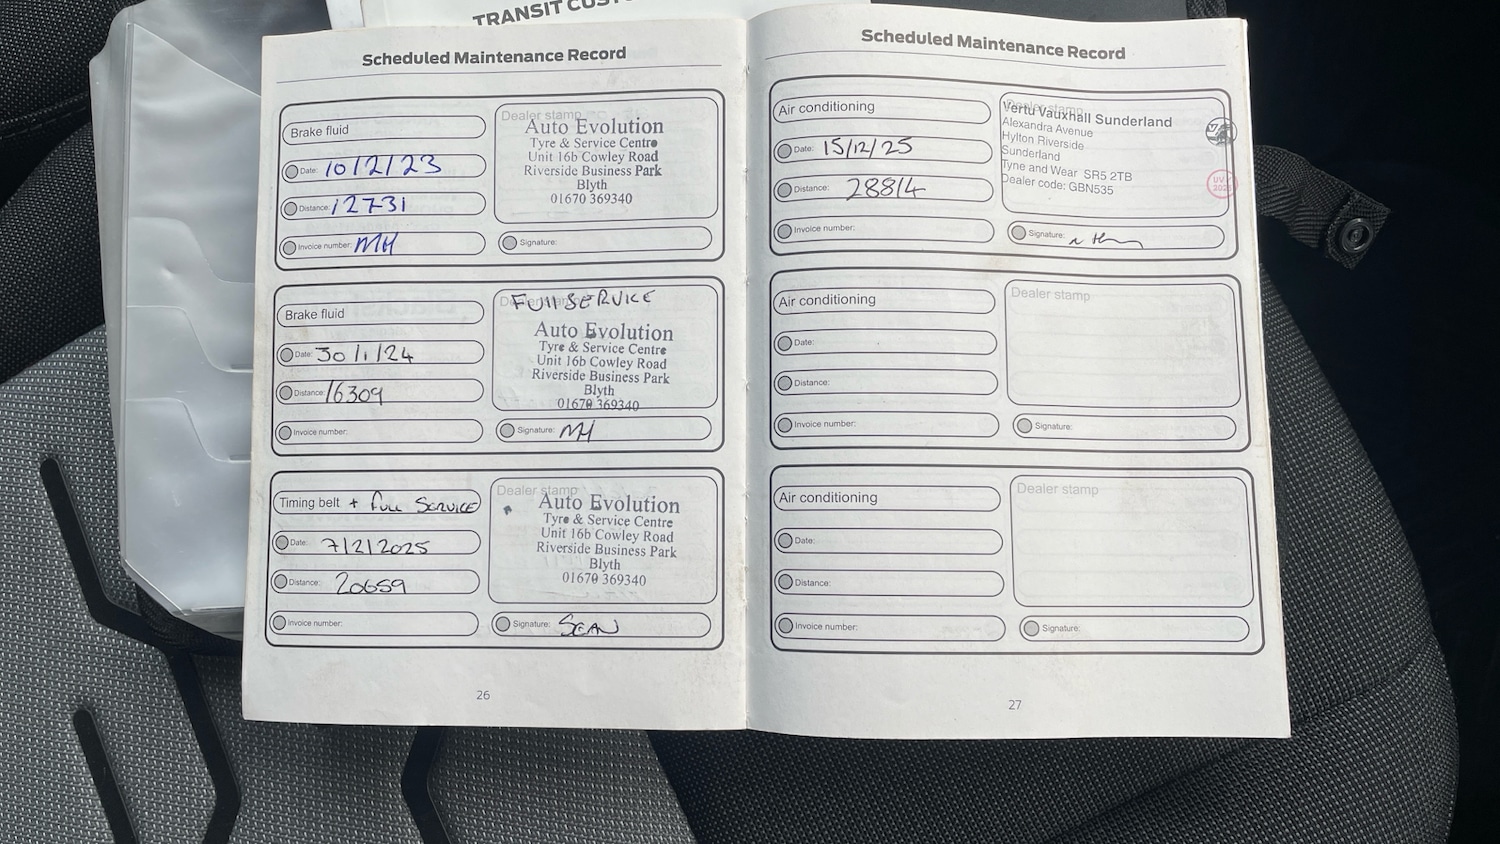 TRANSIT CUSTO
Scheduled Maintenance Record
Brake fluid
Date: 10/2/23
Distance: 12731
Invoice number: MH
Dealer stamp
Auto Evolution
Tyre & Service Centre
Unit 16b Cowley Road
Riverside Business Park
Blyth
01670 369340
Signature:
Brake fluid
Date: 30/1/24
Distance: 16309
Invoice number:
Dealer stamp
Full SERVICE
Auto Evolution
Tyre & Service Centre
Unit 16b Cowley Road
Riverside Business Park
Blyth
01670 369340
Signature: MH
Timing belt + FULL SERVICE
Date: 7/2/2025
Distance: 20659
Invoice number:
Dealer stamp
Auto Evolution
Tyre & Service Centre
Unit 16b Cowley Road
Riverside Business Park
Blyth
01670 369340
Signature: SEAN
26
Scheduled Maintenance Record
Air conditioning
Date: 15/12/25
Distance: 28814
Invoice number:
Dealer stamp
Vertu Vauxhall Sunderland
Alexandra Avenue
Hylton Riverside
Sunderland
Tyne and Wear SR5 2TB
Dealer code: GBN535
Signature:
Air conditioning
Date:
Distance:
Invoice number:
Dealer stamp
Signature:
Air conditioning
Date:
Distance:
Invoice number:
Dealer stamp
Signature:
27